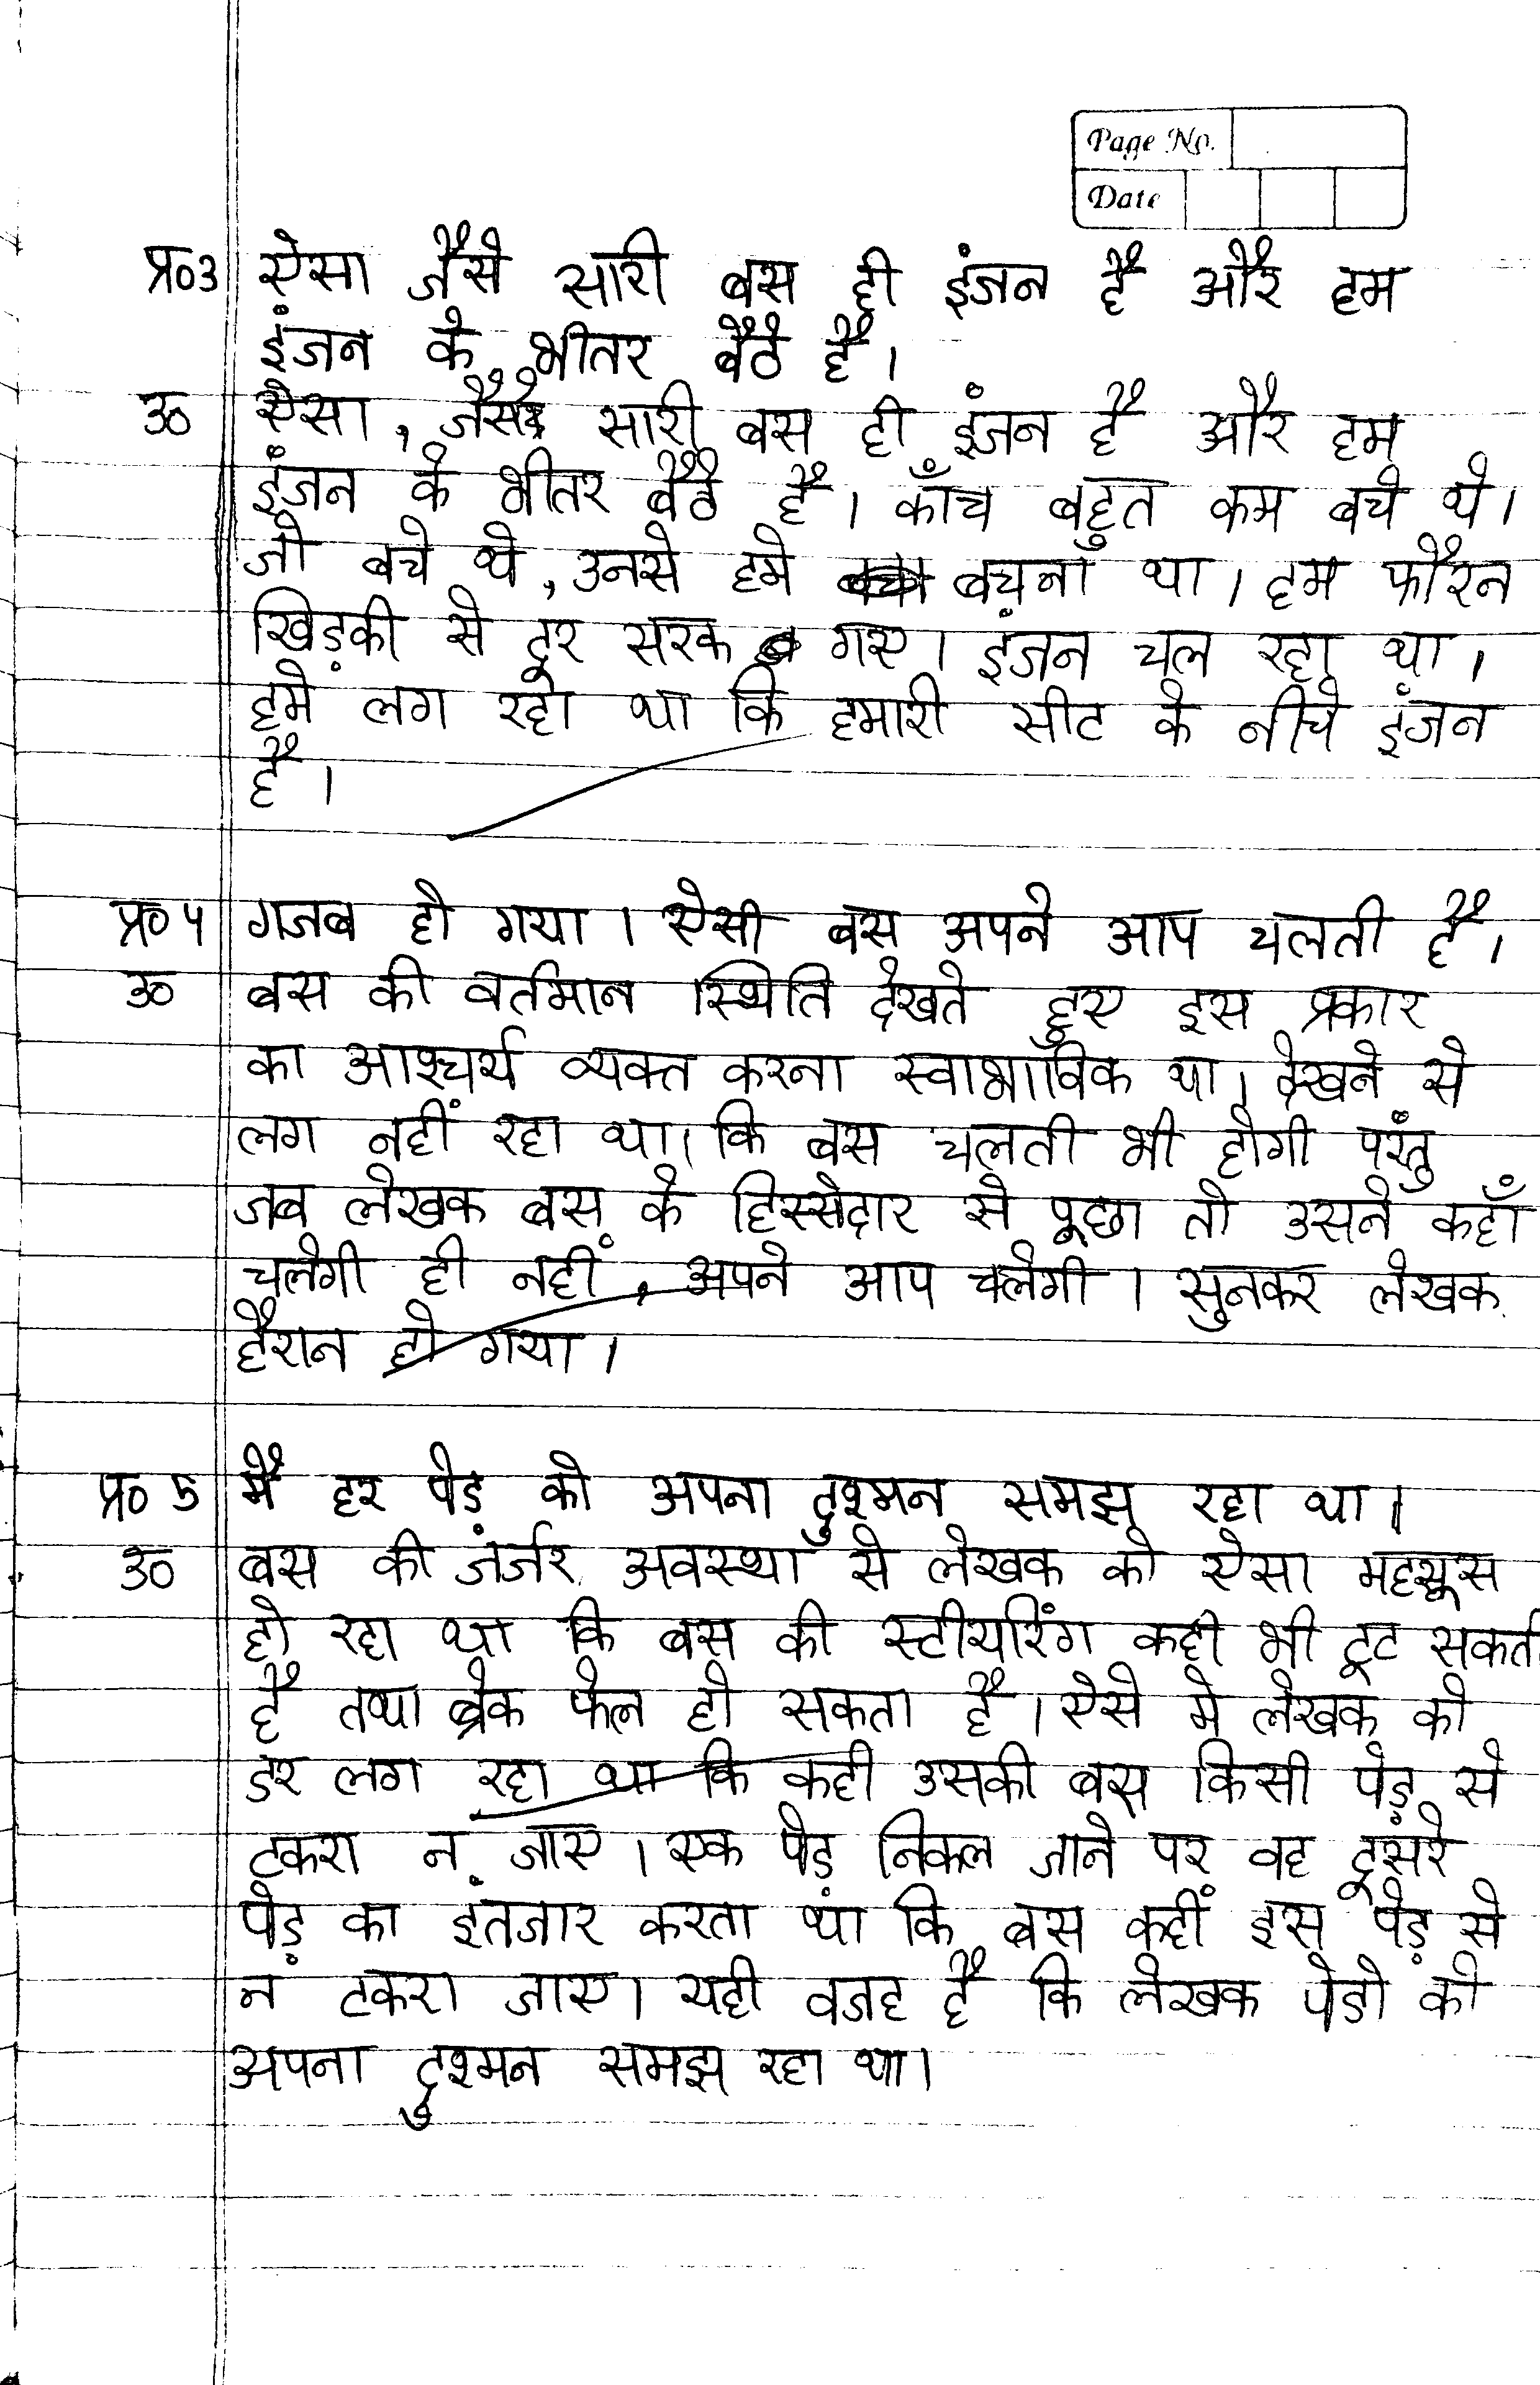 Page No.
Date
प्र०3 ऐसा जैसे सारी बस ही इंजन है और हम
इंजन के भीतर बैठे है।
उ० ऐसा, जैसे सारी बस ही इंजन है और हम
इंजन के भीतर बैठे है। काँच बहुत कम बचे थे।
जो बचे थे, उनसे हमे बचना था। हम फौरन
खिड़की से दूर सरक गए। इंजन चल रहा था।
हमे लग रहा था कि हमारी सीट के नीचे इंजन
है।
प्र० 4 गजब हो गया। ऐसी बस अपने आप चलती है।
उ० बस की वर्तमान स्थिति देखते हुए इस प्रकार
का आश्चर्य व्यक्त करना स्वाभाविक था। देखने से
लग नहीं रहा था। कि बस चलती भी होगी परंतु
जब लेखक बस के हिस्सेदार से पूछा तो उसने कहाँ
चलेगी ही नहीं, अपने आप चलेगी। सुनकर लेखक
हैरान हो गया।
प्र० 5 मै हर पेड़ को अपना दुश्मन समझ रहा था।
उ० बस की जर्जर अवस्था से लेखक को ऐसा महसूस
हो रहा था कि बस की स्टीयरिंग कही भी टूट सकती
है तथा ब्रेक फेल हो सकता है। ऐसे मे लेखक को
डर लग रहा था कि कही उसकी बस किसी पेड़ से
टकरा न जाए। एक पेड़ निकल जाने पर वह दूसरे
पेड़ का इंतजार करता था कि बस कहीं इस पेड़ से
न टकरा जाए। यही वजह है कि लेखक पेडो को
अपना दुश्मन समझ रहा था।